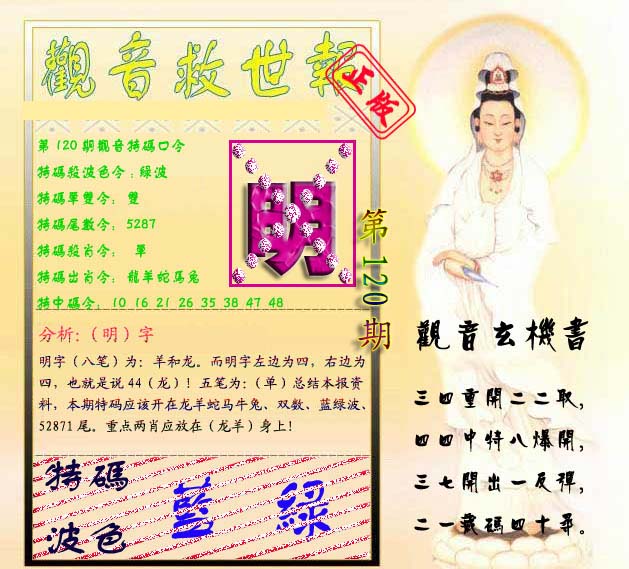 觀音救世報
正版
第120期觀音特碼口令
特碼殺波色令:綠波
特碼單雙令: 雙
特碼尾數令: 5287
特碼殺肖令: 單
特碼出肖令: 龍羊蛇馬兔
特中碼令: 10 16 21 26 35 38 47 48
明
第120期
分析:（明）字
明字（八笔）为: 羊和龙。而明字左边为四，右边为
四，也就是说44（龙）! 五笔为:（单）总结本报资
料，本期特码应该开在龙羊蛇马牛兔、双数、蓝绿波、
52871尾。重点两肖应放在（龙羊）身上!
特碼
波色
藍 綠
觀音玄機書
三四重開二二取,
四四中特八爆開,
三七開出一反彈,
二一載碼四十尋。